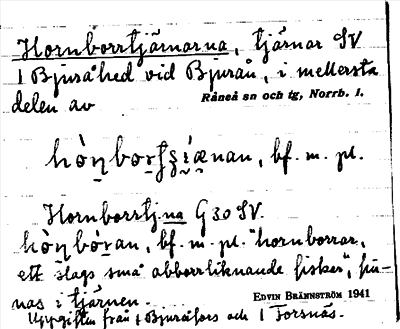 Hornborrtjärnarna, tjärnar SV
1 Bjuråhed vid Bjurån, i mellersta
delen av
Råneå sn och tg, Norrb. l.
bf. m. pl.
Hornborrtj.na G 30 SV.
bf. m. pl. "hornborrar,
ett slags små abborrliknande fiskar", fin-
nas i tjärnen.
EDVIN BRÄNNSTRÖM 1941
Uppgifter från 1 Bjuråfors och 1 Forsnäs.